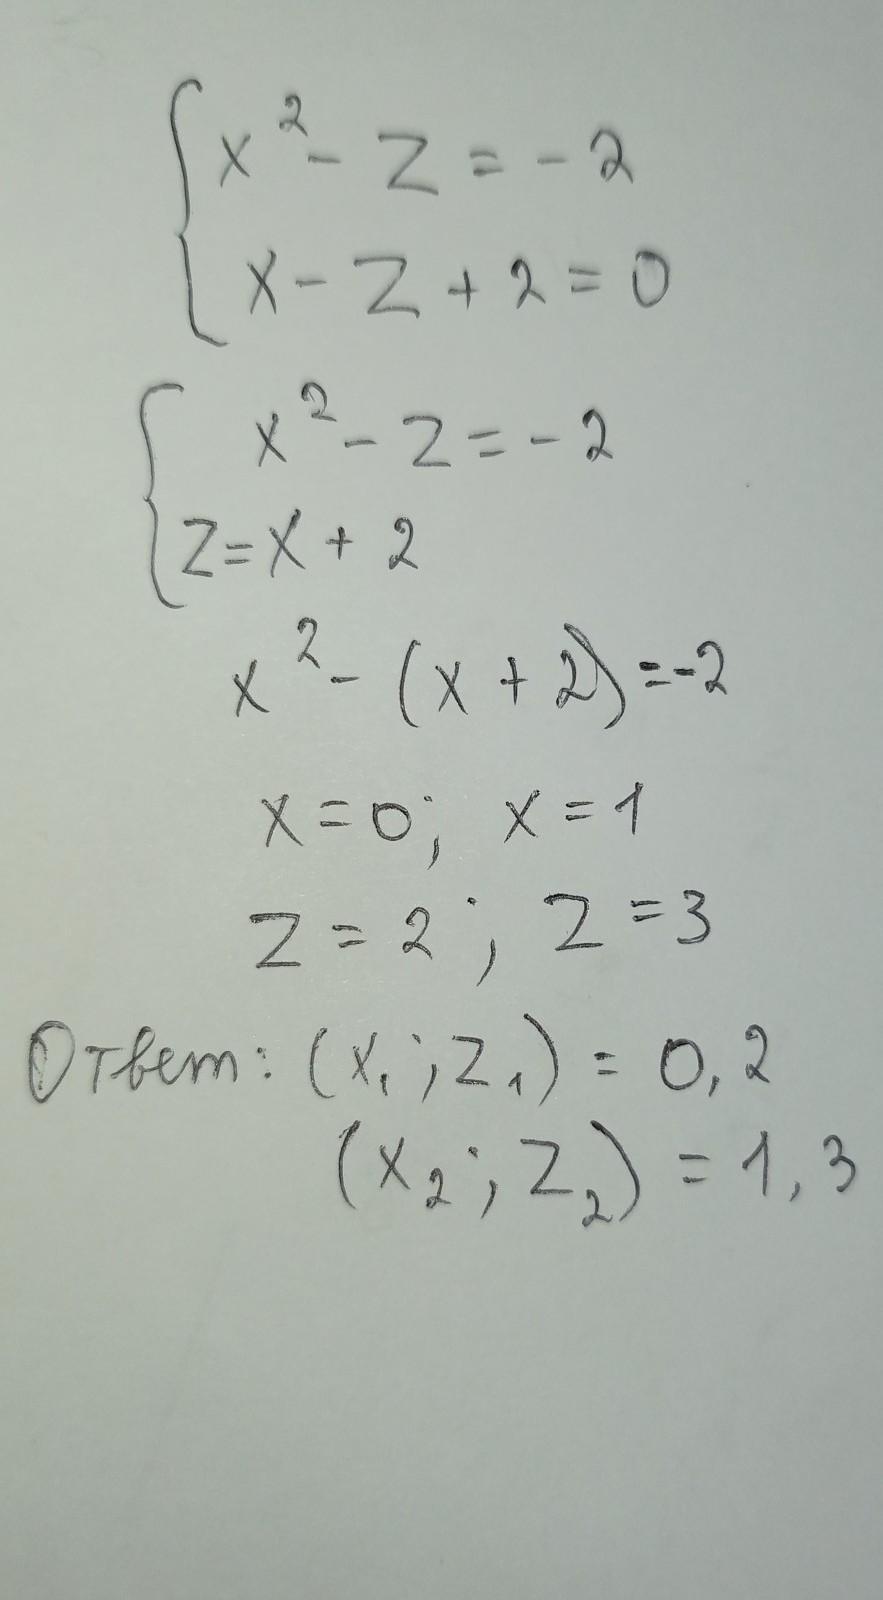 x² - z = -2
x - z + 2 = 0
x² - z = -2
z = x + 2
x² - (x + 2) = -2
x = 0; x = 1
z = 2; z = 3
Ответ: (x₁; z₁) = 0, 2
(x₂; z₂) = 1, 3